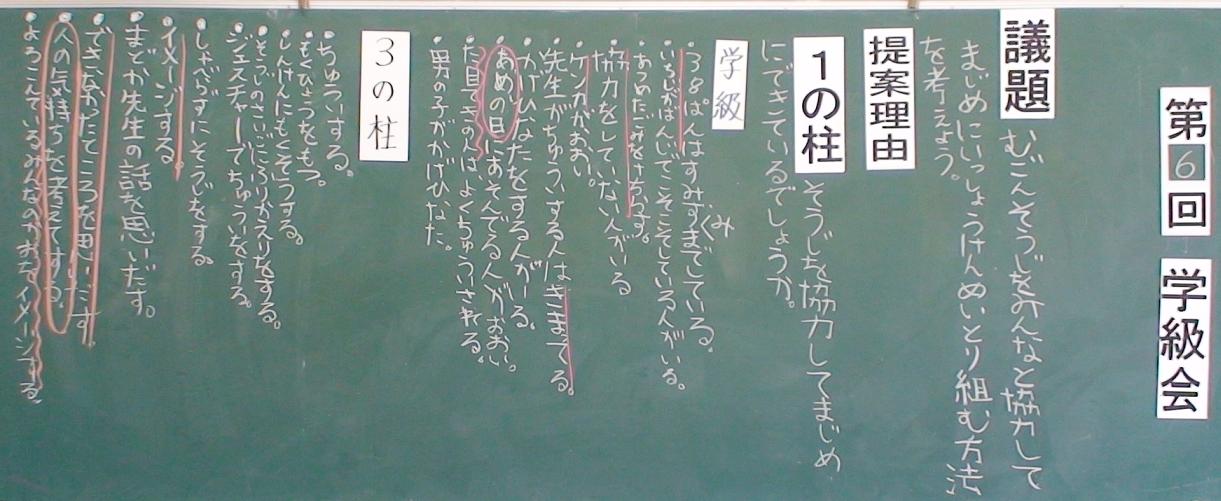 第6回 学級会
議題 むごんそうじをみんなと協力して
まじめにいっしょうけんめいとり組む方法
を考えよう。
提案理由
1の柱 そうじを協力してまじめ
にできているでしょうか。
学級
・38ぱんはすみずみまでしている。
・いちじがはんしでこそこそしている人がいる。
・あつめたごみをけちらす。
・協力をしていない人がいる
・ケンカがおおい。
・先生がちゅういする人はきまってる。
・かげひなたをする人がいる。
・あめの日にあそんでる人がおおい。
・た見てきの人はよくちゅういされる。
・男の子がかげひなた。
3の柱
・ちゅういする。
・もくひょうをもつ。
・しんけんにもくそうする。
・そうじのさいごにふりかえりをする。
・ジェスチャーでちゅういをする。
・しゃべらずにそうじをする。
・イメージする。
・まどか先生の話を思いだす。
・できなかったところを思いだす
・人の気持ちを考えてする。
・よろこんでいるみんなのかおをイメージする。